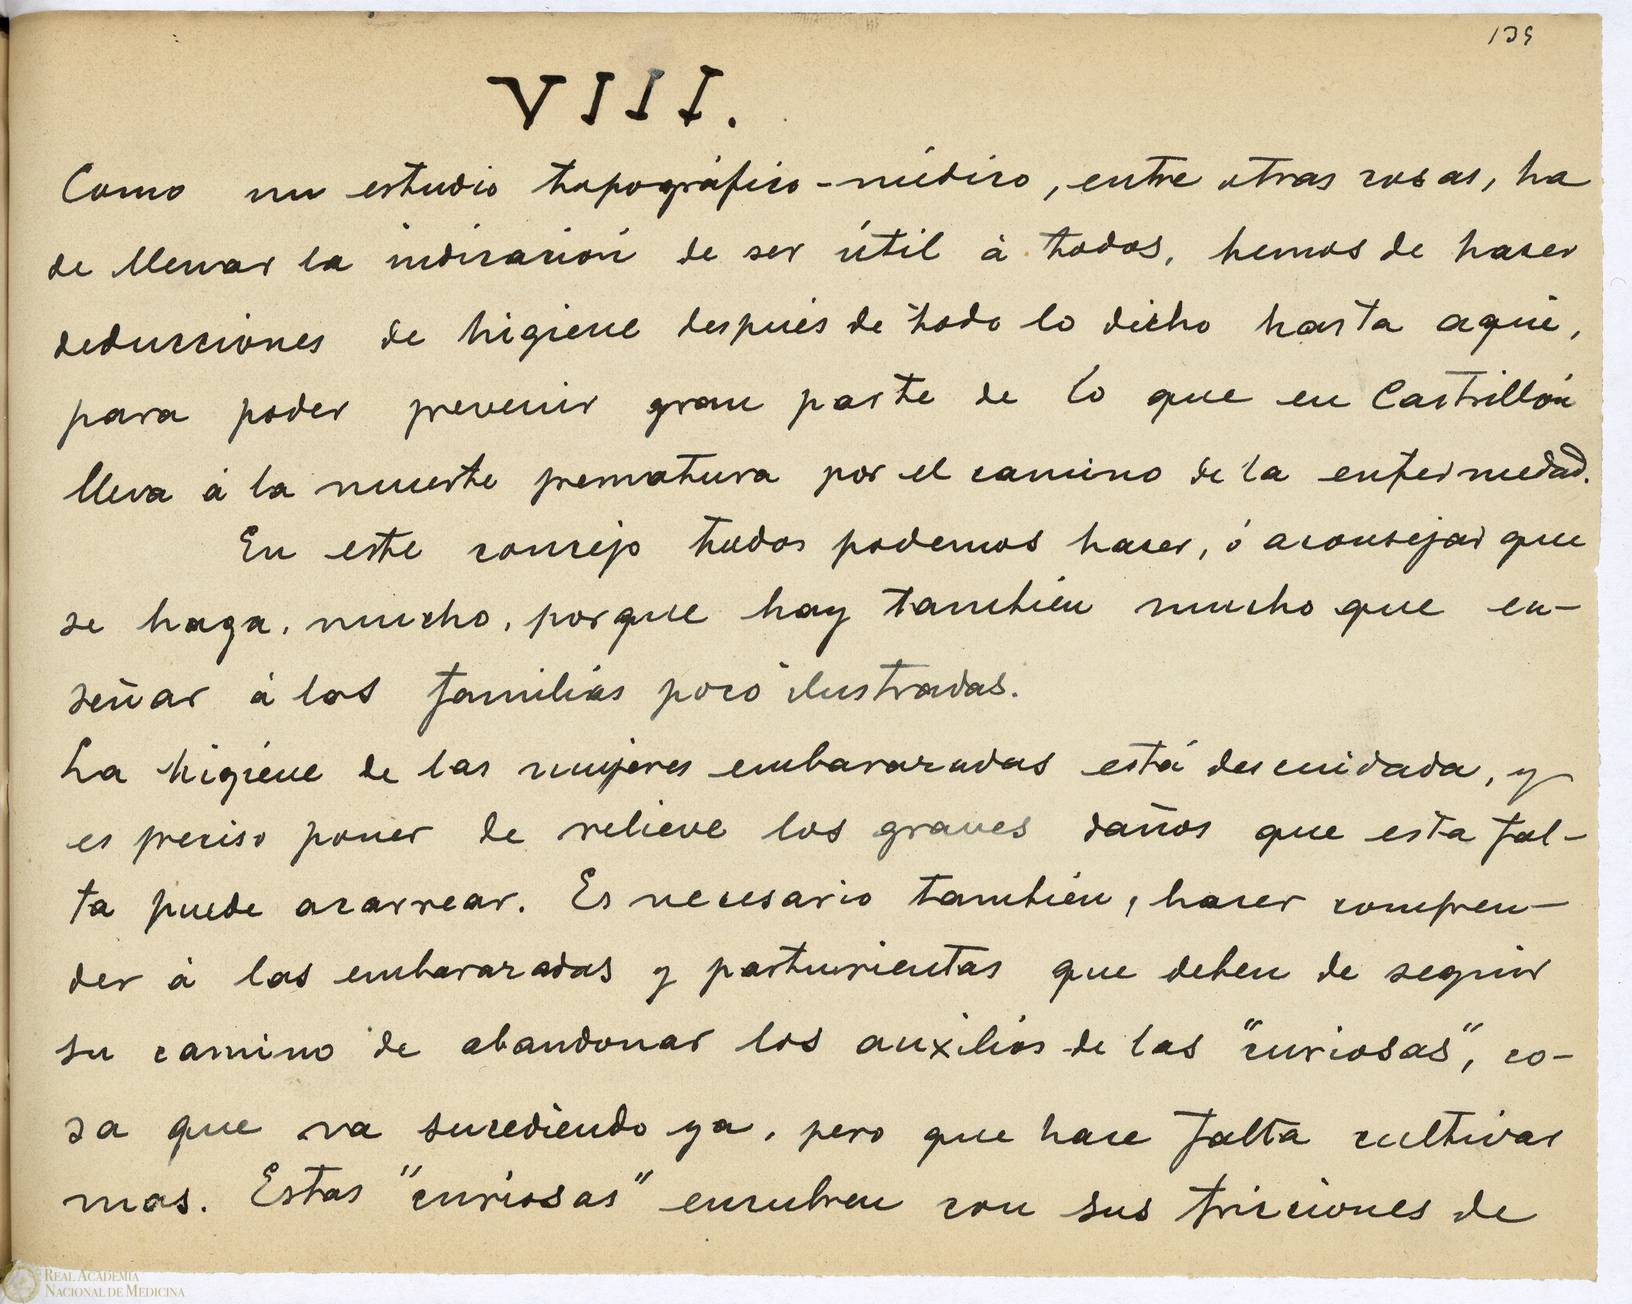 139
VIII.
Como un estudio topográfico-médico, entre otras cosas, ha
de llenar la indicación de ser útil á todos, hemos de hacer
deducciones de higiene después de todo lo dicho hasta aquí,
para poder prevenir gran parte de lo que en Castrillón
lleva á la muerte prematura por el camino de la enfermedad.
En este concejo todos podemos hacer, ó aconsejar que
se haga, mucho, porque hay también mucho que en-
señar á las familias poco ilustradas.
La higiene de las mujeres embarazadas está descuidada, y
es preciso poner de relieve los graves daños que esta fal-
ta puede acarrear. Es necesario también, hacer compren-
der á las embarazadas y parturientas que deben de seguir
su camino de abandonar los auxilios de las "curiosas", co-
sa que va sucediendo ya, pero que hace falta cultivar
mas. Estas "curiosas" encubren con sus fricciones de
REAL ACADEMIA
NACIONAL DE MEDICINA